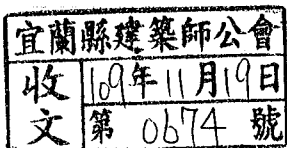 宜蘭縣建築師公會
收文
109年11月19日
第 0674 號